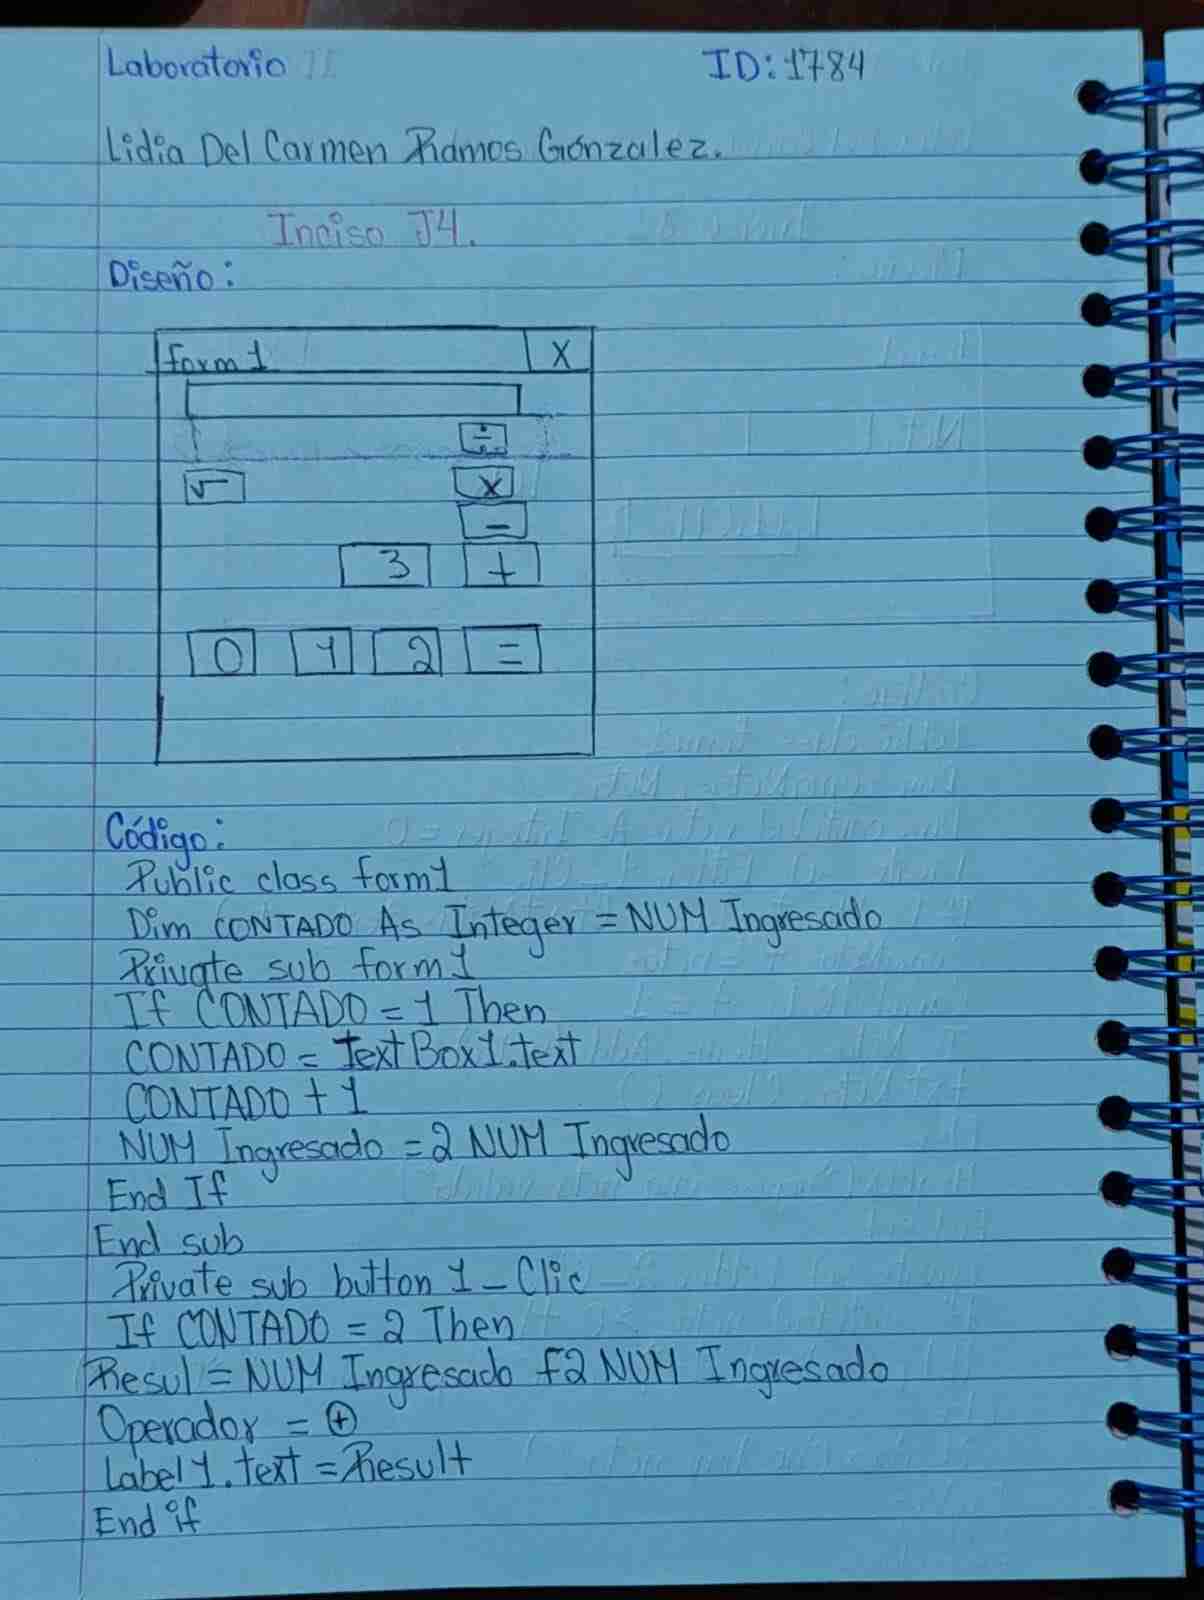 Laboratorio II
ID: 1784
Lidia Del Carmen Ramos Gónzalez.
Inciso J4.
Diseño:
form1 X
÷
√ x
-
3 +
0 1 2 =
Código:
Public class form1
Dim CONTADO As Integer = NUM Ingresado
Private sub form1
If CONTADO = 1 Then
CONTADO = textBox1.text
CONTADO + 1
NUM Ingresado = 2 NUM Ingresado
End If
End sub
Private sub button 1 - Clic
If CONTADO = 2 Then
Resul = NUM Ingresado +2 NUM Ingresado
Operador = ⊕
Label1.text = Result
End if